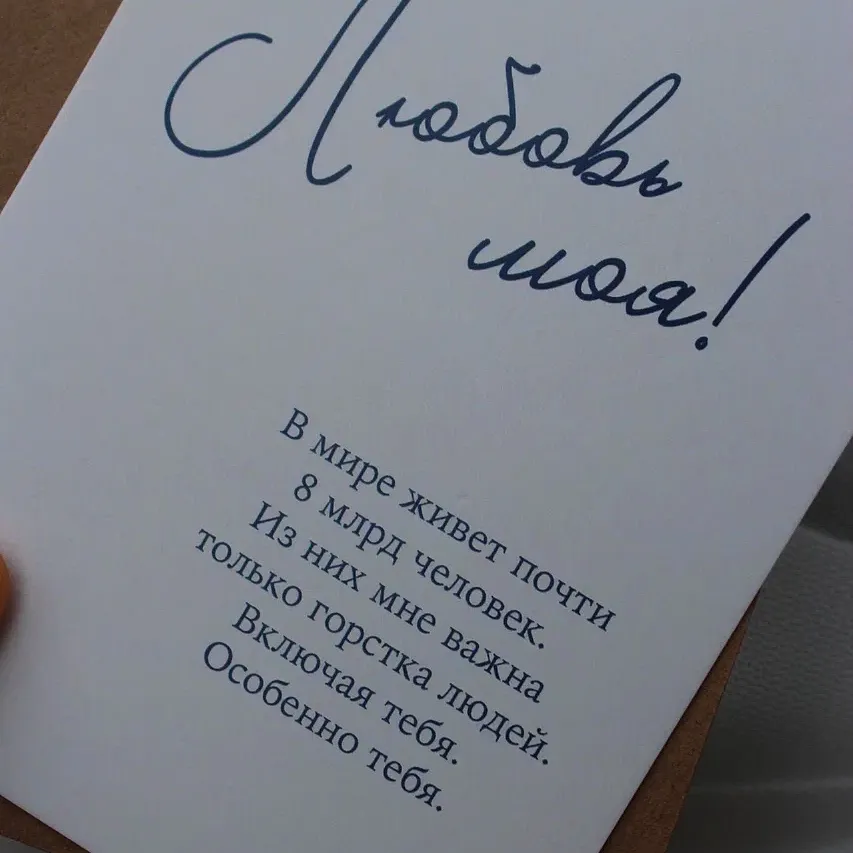 Любовь
моя!
В мире живет почти
8 млрд человек.
Из них мне важна
только горстка людей.
Включая тебя.
Особенно тебя.